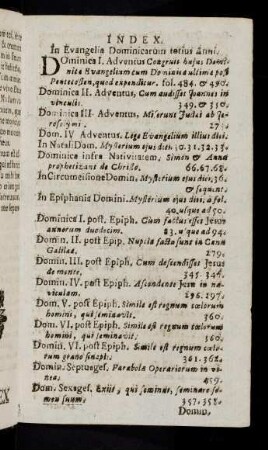 INDEX.
In Evangelia Dominicarum totius Anni.
Dominica I. Adventus Congruit hujus Domi-
nicæ Evangelium cum Dominica ultima post
Pentecosten, quod expenditur. fol. 484. & 490.
Dominica II. Adventus, Cum audisset Joannes in
vinculis. 349. & 350.
Dominica III. Adventus, Miserunt Judæi ab Je-
rosolymi. 27
Dom. IV Adventus. Lege Evangelium illius diei.
In Natali Dom. Mysterium ejus diei, 30. 31. 32. 33.
Dominica infra Nativitatem, Simon & Anna
prophetizant de Christo. 66. 67. 68.
In Circumcisione Domin. Mysterium ejus diei, 36.
& sequent.
In Epiphania Domini. Mysterium ejus diei, à fol.
40, usque ad 50.
Dominica I. post. Epiph. Cùm factus esset Jesus
annorum duodecim. 83. usque ad 94.
Domin. II. post Epip. Nuptiæ factæ sunt in Cana
Galilææ. 279.
Domin. III. post Epiph. Cum descendisset Jesus
de monte. 345. 346.
Domin. IV. post Epiph. Ascendente Jesu in na-
viculam. 296. 297.
Dom. V. post Epiph. Simile est regnum cœlorum
homini, qui seminavit. 360.
Dom. VI. post Epiph. Simile est regnum cœlorum
homini, qui seminavit. 360.
Domin. VI. post Epiph. Simile est regnum cœlo-
rum grano sinapis. 361. 362.
Domin. Septuages. Parabola Operariorum in vi-
nea. 459.
Dom. Sexages. Exiit, qui seminat, seminare se-
men suum. 357. 358.
Domin,